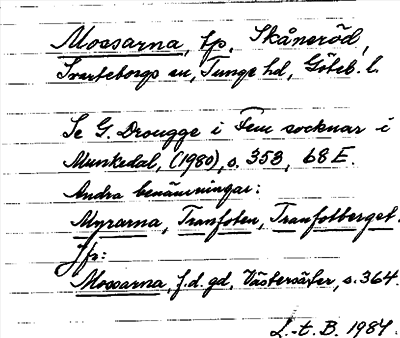 Mossarna, tp, Skåneröd,
Svarteborgs sn, Tunge hd, Göteb. l.
Se G. Drougge i Fem socknar i
Munkedal, (1980), s. 353, 68 E.
Andra benämningar:
Myrarna, Tranfoten, Tranfotberget.
Jfr:
Mossarna, f.d. gd, Västersäter, s. 364.
L-t. B. 1984.